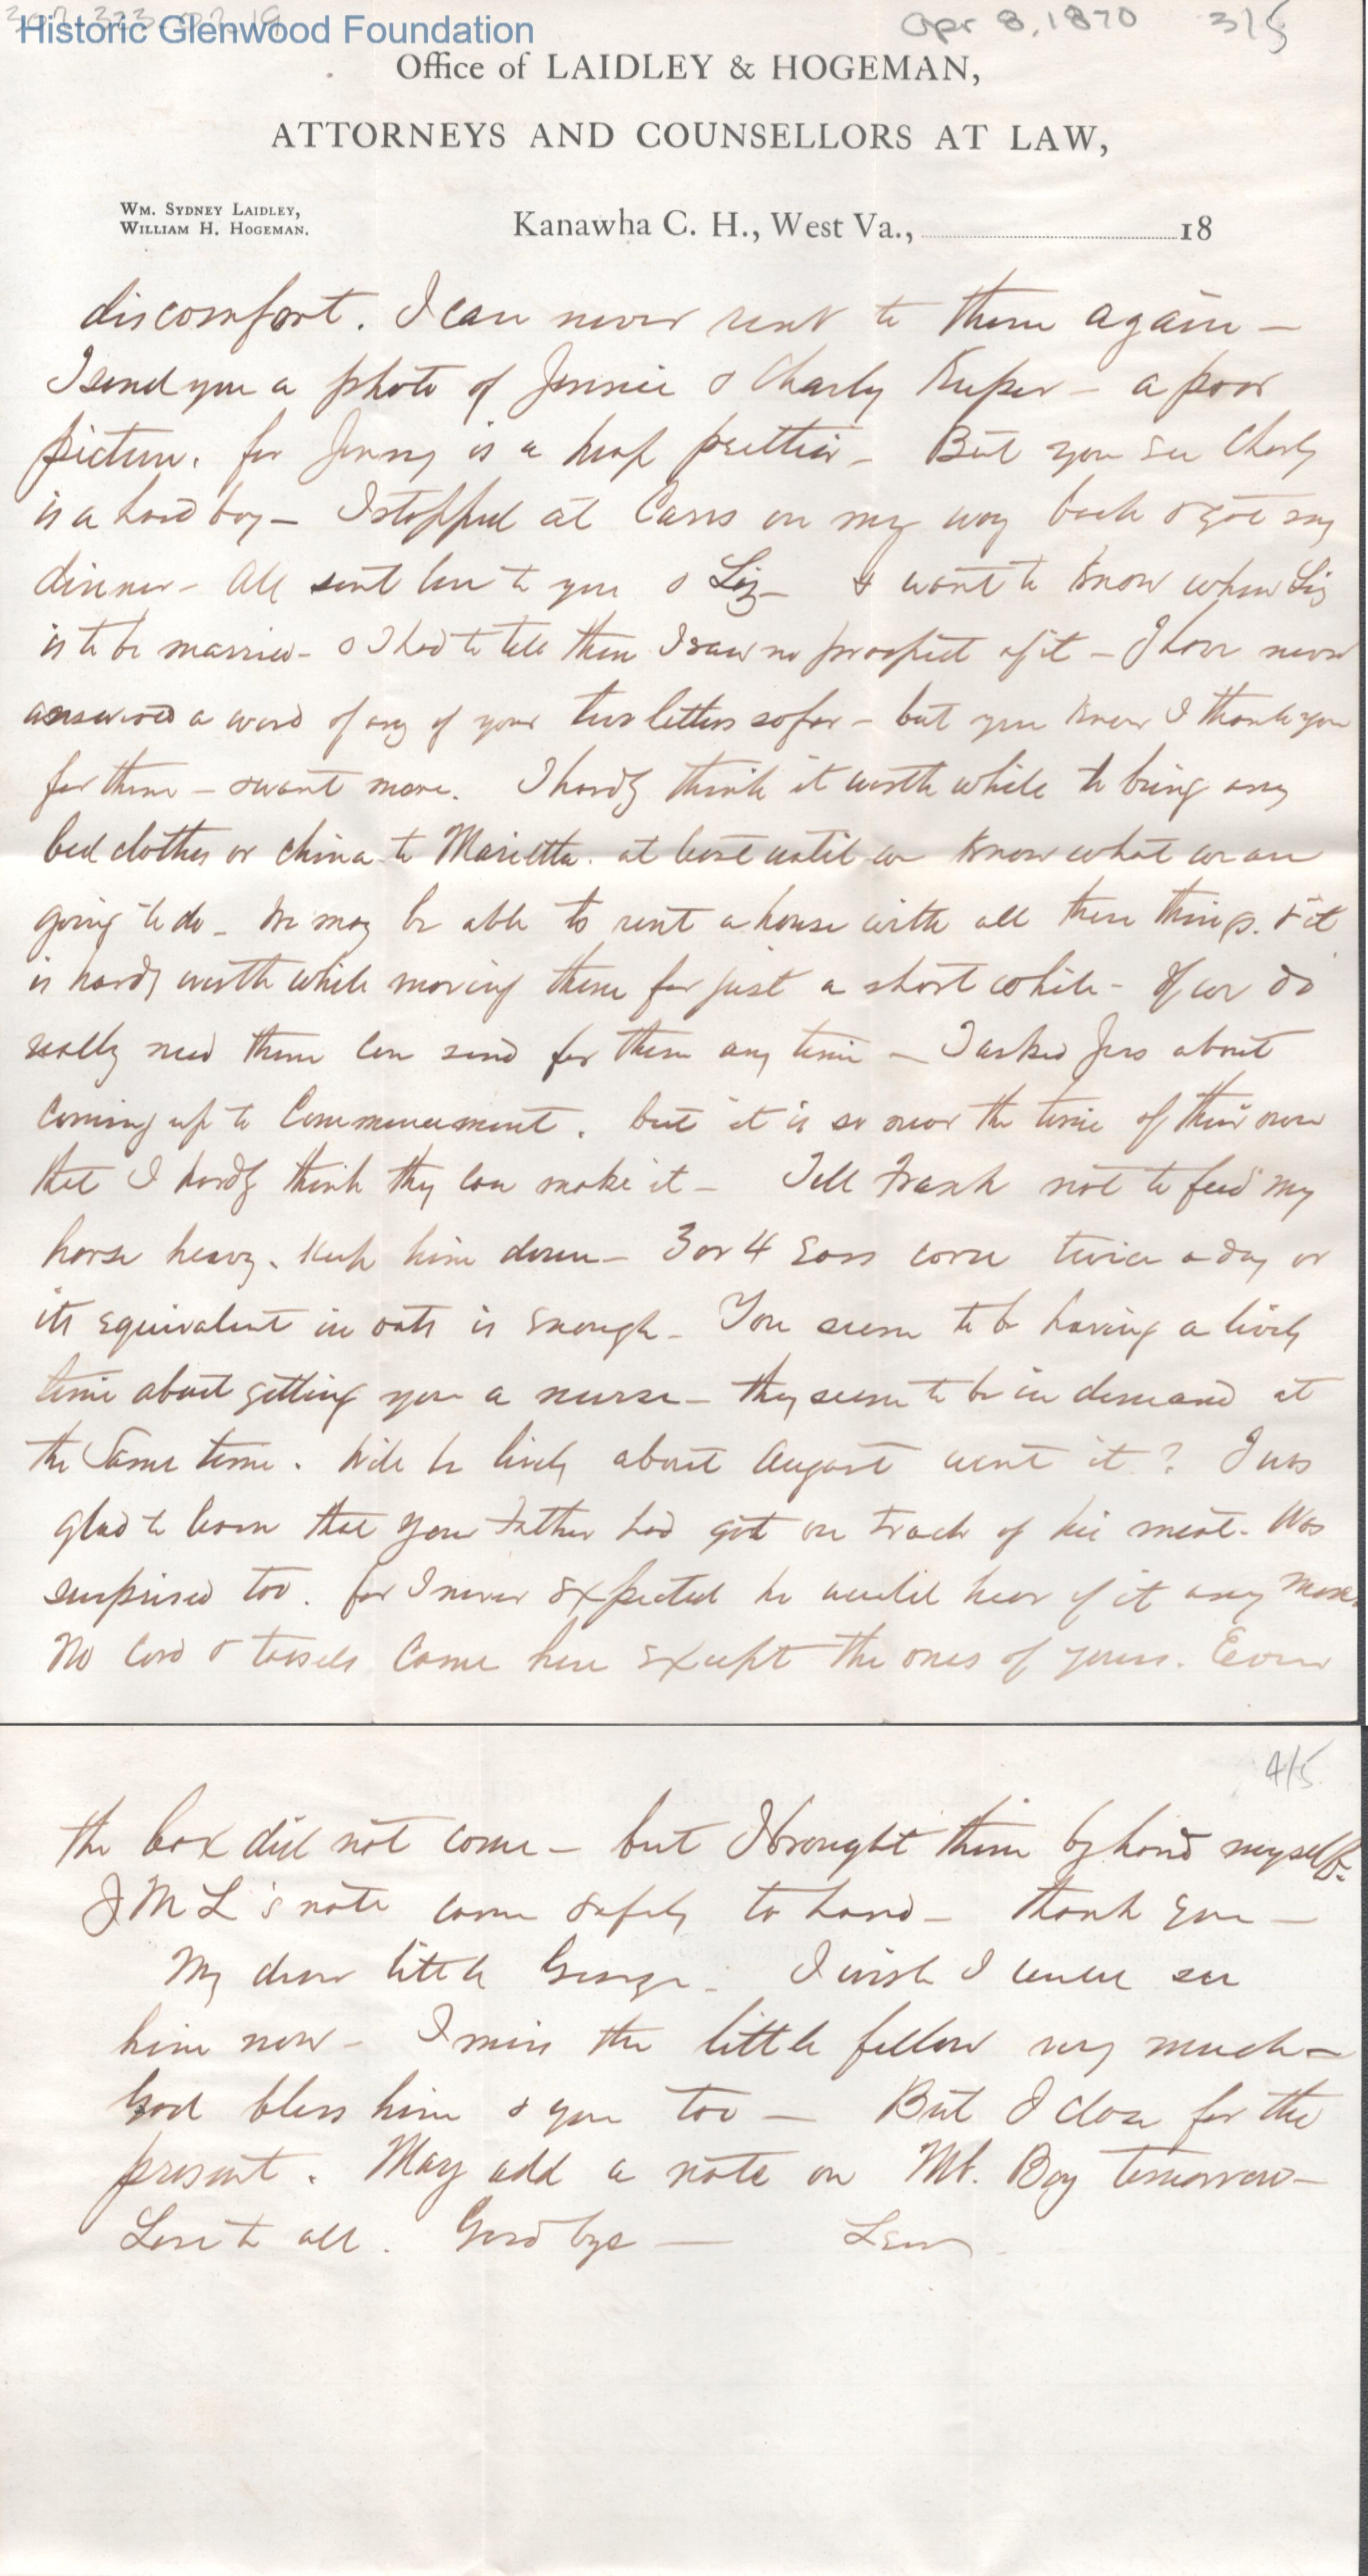 Historic Glenwood Foundation
Apr 8, 1870 3/5
Office of LAIDLEY & HOGEMAN,
ATTORNEYS AND COUNSELLORS AT LAW,
WM. SYDNEY LAIDLEY,
WILLIAM H. HOGEMAN.
Kanawha C. H., West Va., 18
discomfort. I can never rent to them again –
I send you a photo of Jennie & Charly – a poor
picture. for Jenny is a heap prettier – But you see Charly
is a hard boy – I stopped at Cars on my way back & got my
dinner – All sent love to you & Liz – & want to know when Liz
is to be married – & I had to tell them I saw no prospect of it – I have never
answered a word of any of your two letters so far – but you know I thank you
for them – & want more. I hardly think it worth while to bring any
bed clothes or china to Marietta. at least until we know what we are
going to do – We may be able to rent a house with all these things. & it
is hardly worth while moving them for just a short while – If we do
really need them can send for them any time – I asked about
coming up to Commencement. but it is so near the time of their own
that I hardly think they can make it – Tell Frank not to feed my
horse heavy. Keep him down – 3 or 4 ears corn twice a day or
its equivalent in oats is enough – You seem to be having a lively
time about getting you a nurse – they seem to be in demand at
the same time. Will be lively about August wont it? I was
glad to learn that your Father had got on track of his meat – Was
surprised too. for I never expected he would hear of it any more.
No cord & tassels came here except the ones of yours. Even
4/5
the box did not come – but I brought them by hand myself.
J M L's note came safely to hand – thank you –
My dear little George – I wish I could see
him now – I miss the little fellow very much –
God bless him & you too – But I close for the
present. May add a note on Mt. Boy tomorrow –
Love to all. Good bye – Lew